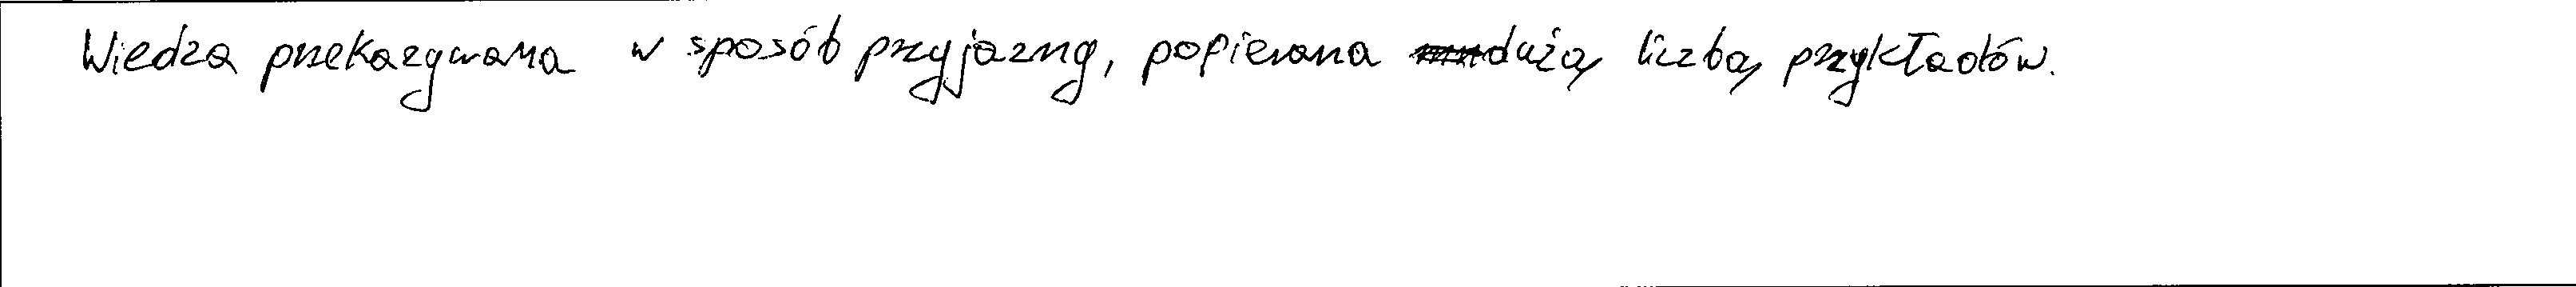 Wiedza przekazywana w sposób przyjazny, popierana dużą liczbą przykładów.